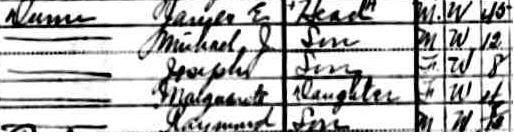 Dunn James E Head M. W 45
Michael J. Son M W 12
Joseph Son F. W. 8
Marguerite Daughter F W
Raymond Son M W